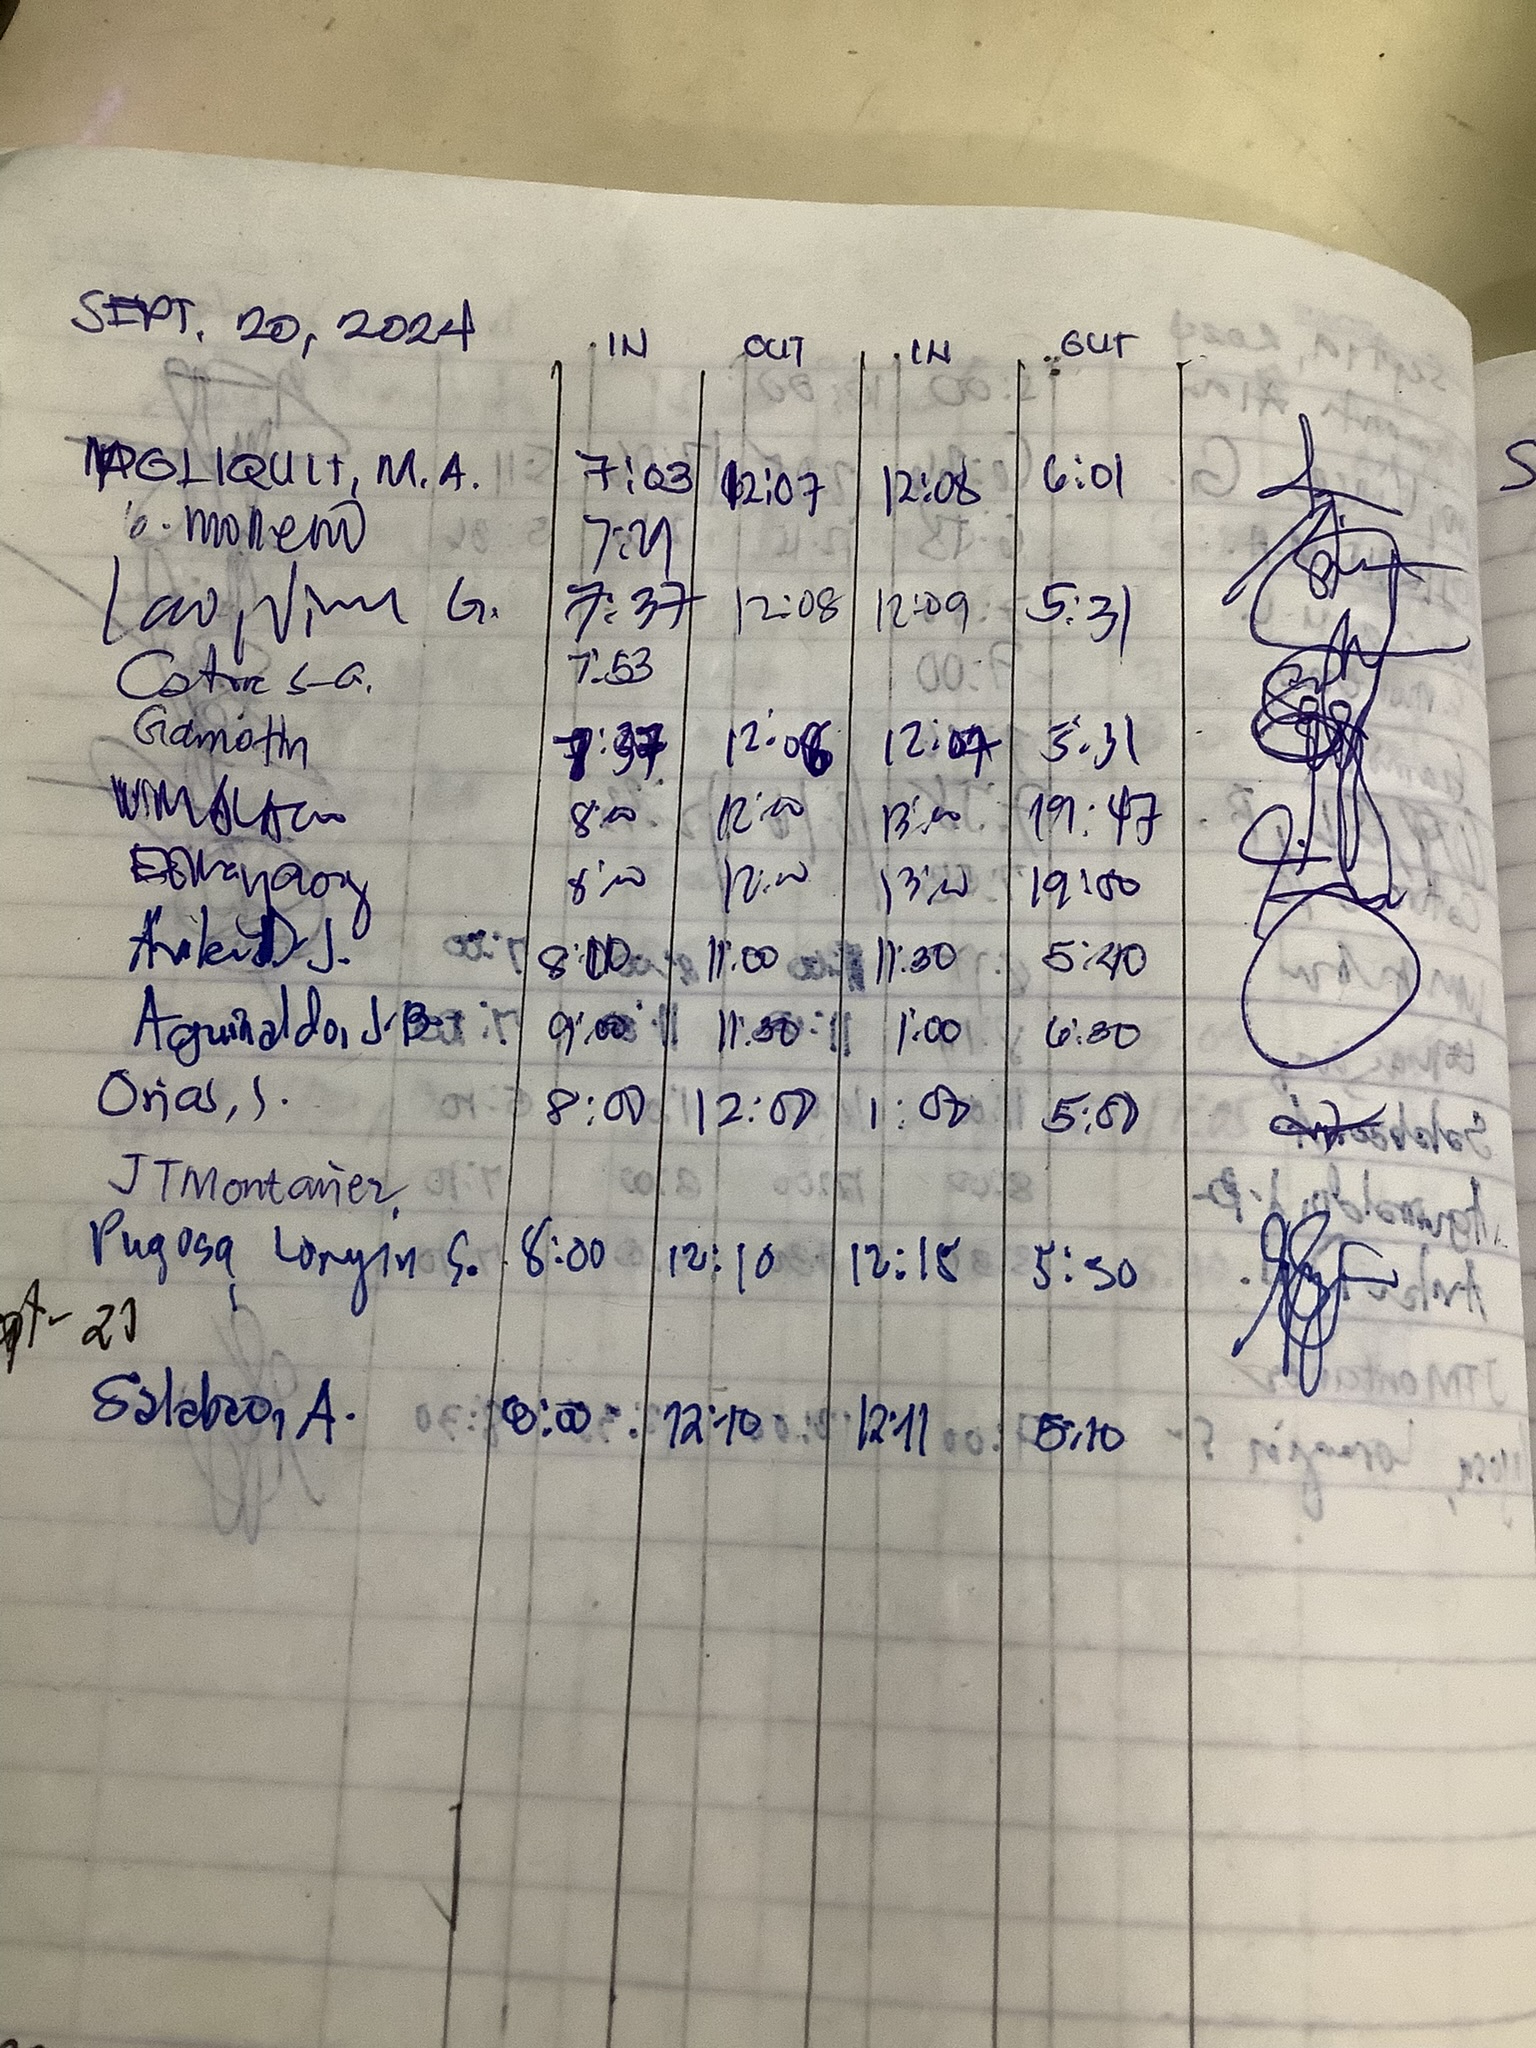 SEPT. 20, 2024 IN OUT IN OUT
MAGLIQUIT, M.A. 7:03 12:07 12:08 6:01
Moneno 7:21
Lao, G. 7:37 12:08 12:09 5:31
7:53
Gamoth 7:37 12:08 12:07 5:31
8:00 12:00 13:00 19:47
8:00 12:00 13:00 19:00
J. 8:00 11:00 11:30 5:40
Aguinaldo, J.B. 9:00 11:30 1:00 6:30
Orias, S. 8:00 12:00 1:00 5:00
JTMontañez
Pugosa, Longin S. 8:00 12:10 12:15 5:30
21
Salabao, A. 8:00 12:10 12:11 5:10